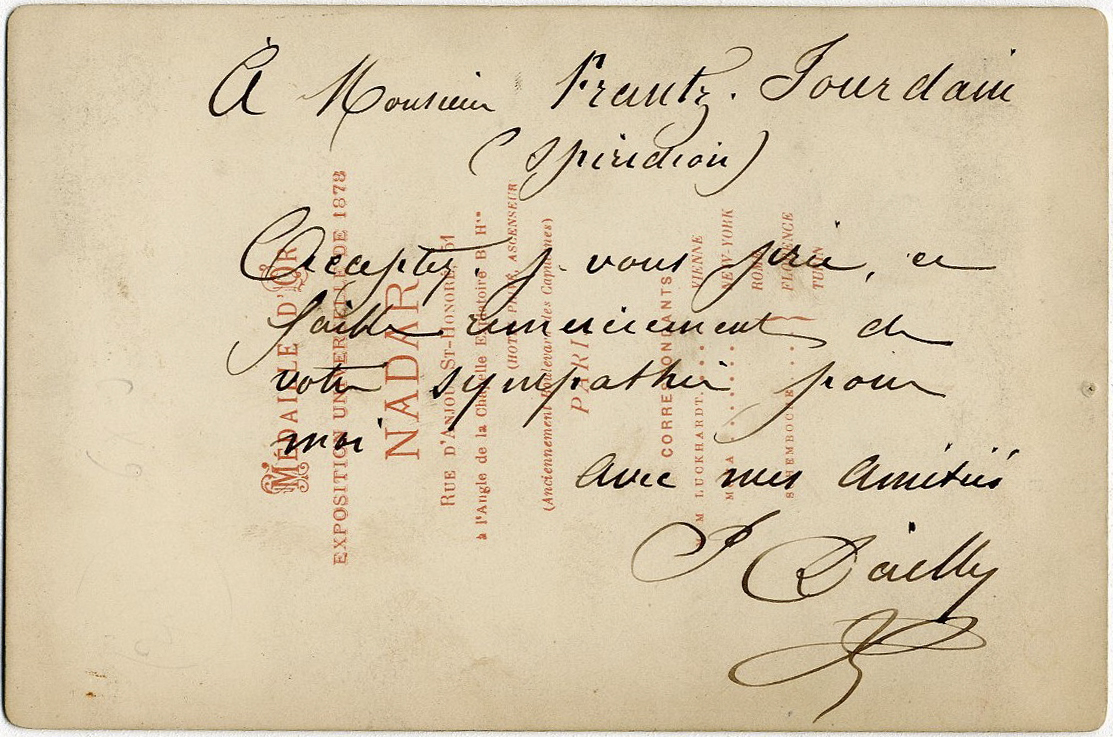 À Monsieur Frantz. Jourdain
(Spiridion)
Acceptez, j. vous prie, ce
faible remerciement de
votre sympathie pour
moi
avec mes amitiés
J Dailly
MÉDAILLE D'OR
EXPOSITION UNIVERSELLE DE 1878
NADAR
RUE D'ANJOU ST-HONORÉ, 51
à l'Angle de la Chapelle Expiatoire Bd Hn
(HOTEL PRIVÉ, ASCENSEUR
(Anciennement Boulevard des Capucines)
PARIS
CORRESPONDANTS
M M LUCKHARDT..... VIENNE
NEW-YORK
ROME
SCHEMBOCHE... FLORENCE
TURIN